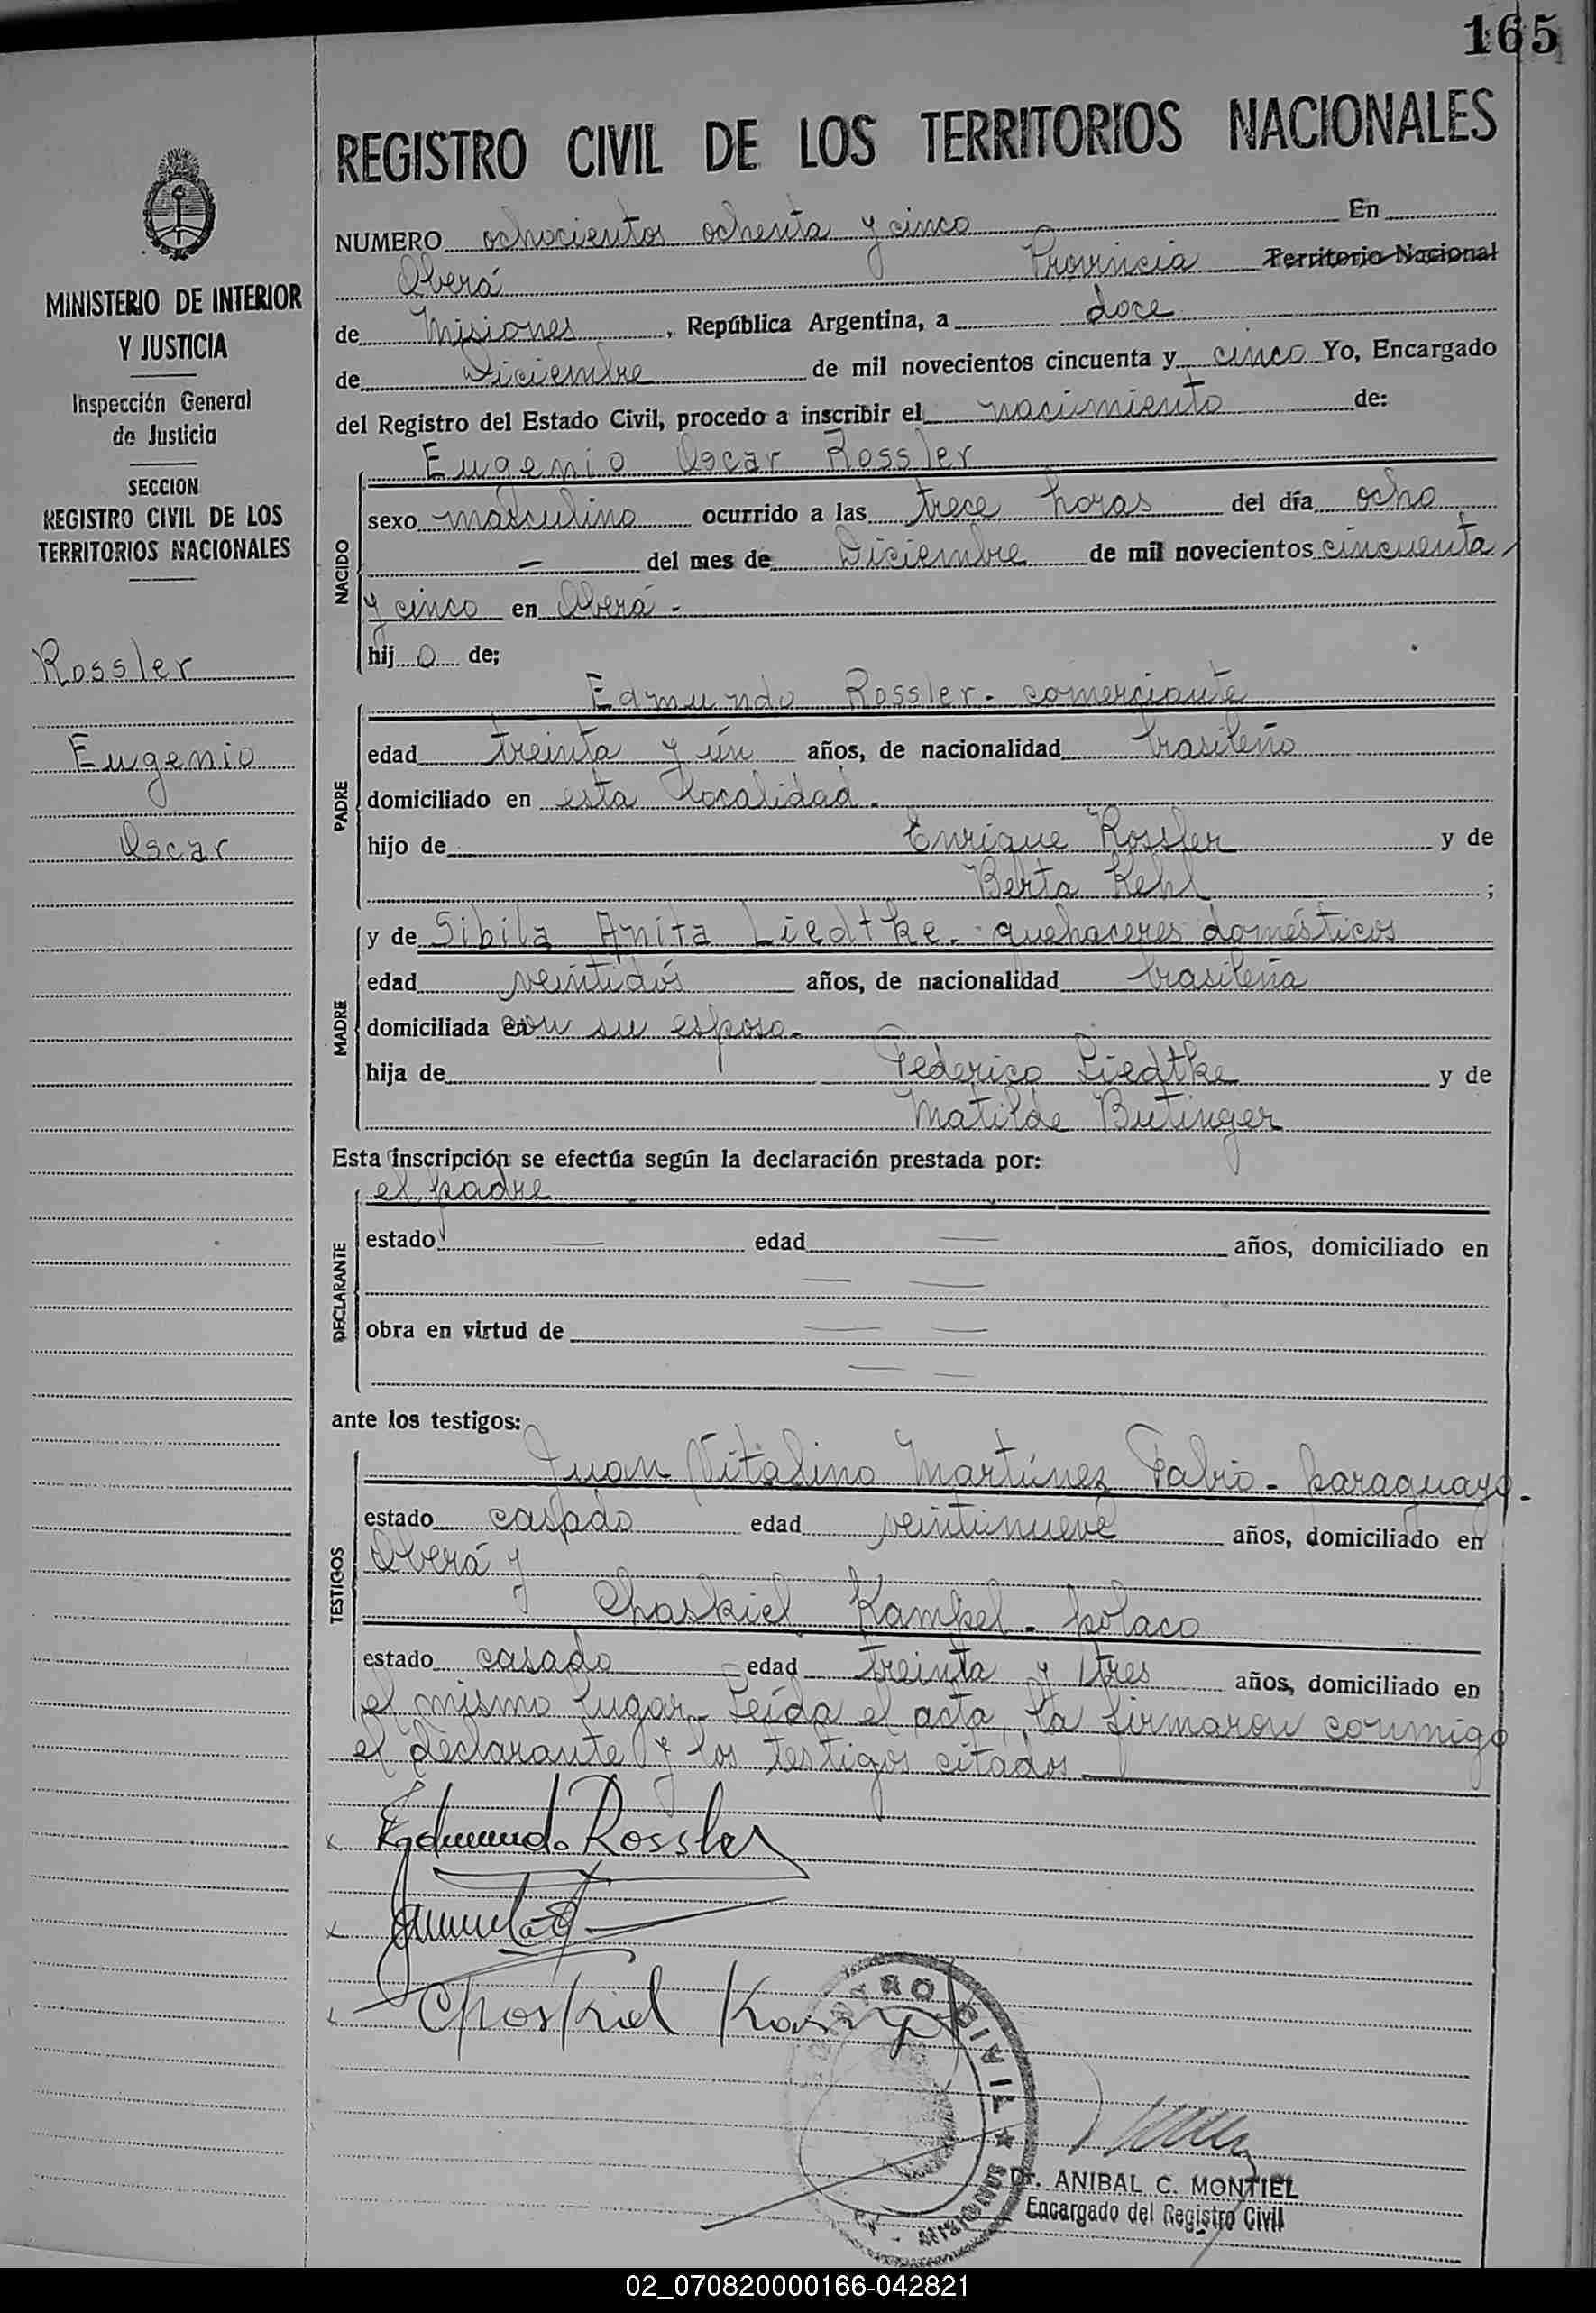 165
REGISTRO CIVIL DE LOS TERRITORIOS NACIONALES
MINISTERIO DE INTERIOR
Y JUSTICIA
Inspección General
de Justicia
SECCION
REGISTRO CIVIL DE LOS
TERRITORIOS NACIONALES
Rossler
Eugenio
Oscar
NUMERO ochocientos ochenta y cinco En
Oberá Provincia Territorio Nacional
de Misiones, República Argentina, a doce
de Diciembre de mil novecientos cincuenta y cinco Yo, Encargado
del Registro del Estado Civil, procedo a inscribir el nacimiento de:
NACIDO
Eugenio Oscar Rossler
sexo masculino ocurrido a las trece horas del día ocho
— del mes de Diciembre de mil novecientos cincuenta
y cinco en Oberá.-
hijo de;
PADRE
Edmundo Rossler - comerciante
edad treinta y ún años, de nacionalidad brasileño
domiciliado en esta localidad.
hijo de Enrique Rossler y de
Berta Kehl ;
MADRE
y de Sibila Anita Liedtke - quehaceres domésticos
edad veintidós años, de nacionalidad brasileña
domiciliada en con su esposo.
hija de Federico Liedtke y de
Matilde Butinger
Esta inscripción se efectúa según la declaración prestada por:
DECLARANTE
el padre
estado — edad — años, domiciliado en
— —
obra en virtud de — —
— —
ante los testigos:
TESTIGOS
Juan Vitalino Martínez Fabio - paraguayo -
estado casado edad veintinueve años, domiciliado en
Oberá y
Chaskiel Kampel - polaco
estado casado edad treinta y tres años, domiciliado en
el mismo lugar.- Leída el acta, la firmaron conmigo
el declarante y los testigos citados
x Edmundo Rossler
x
Chaskiel Kampel
REGISTRO CIVIL ★ MISIONES
Dr. ANIBAL C. MONTIEL
Encargado del Registro Civil
02_070820000166-042821